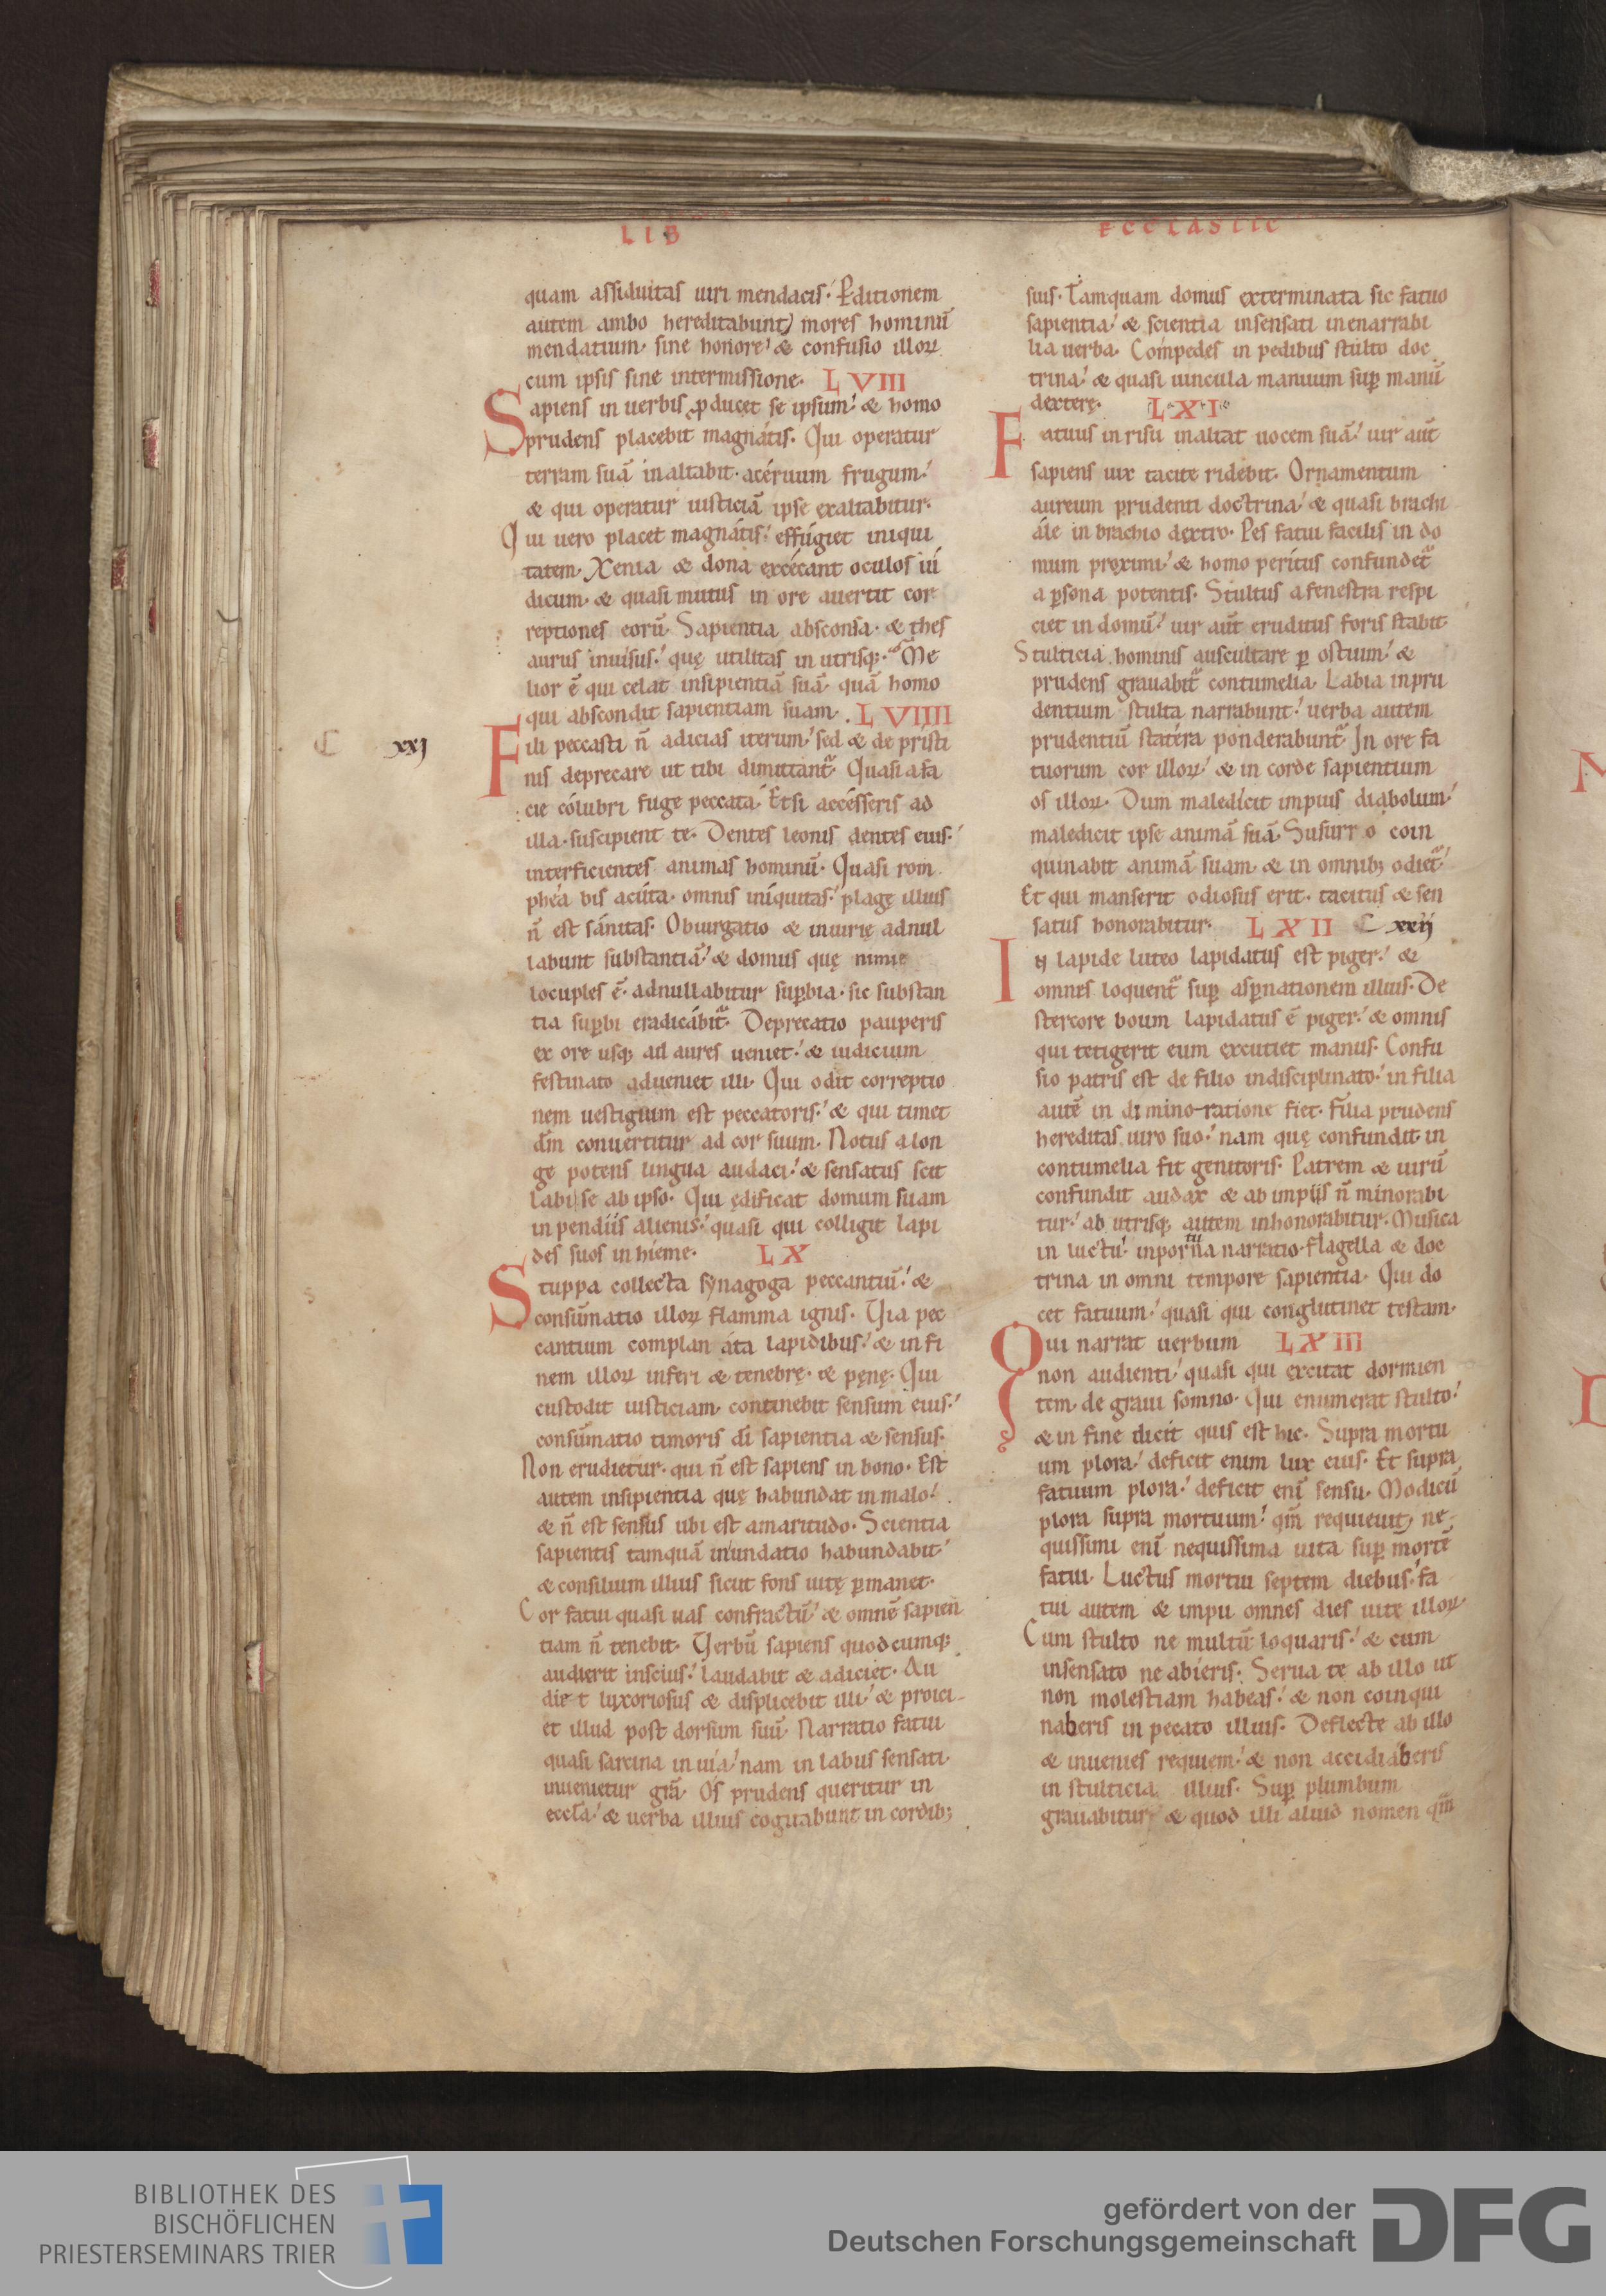 LIB
ECCLASTIC
quam assiduitas uiri mendacis. P̱ditionem
autem ambo hereditabunt) mores hominū
mendatium. sine honore. & confusio illoꝝ
cum ipsis sine intermissione. LVIII
Sapiens in uerbis ꝓducet se ipsum. & homo
prudens placebit magnátis. Qui operatur
terram suā inaltabit. acéruum frugum.
& qui operatur iusticiā ipse exaltabitur.
Qui uero placet magnátis. effúgiet iniqui
tatem. Xenia & dona excécant oculos iu
dicum. & quasi mutus in ore auertit cor
reptiones eorū. Sapientia absconsa. & thes
aurus inuisus. quę utilitas in utrisq;. Me
lior ē qui celat insipientiā suā. quā homo
qui abscondit sapientiam suam. LVIIII
C xxj
Fili peccasti n̄ adicias iterum. sed & de pristi
nis deprecare ut tibi dimittant᷑. Quasi a fa
cie cólubri fuge peccata. Etsi accésseris ad
illa. suscipient te. Dentes leonis dentes eius.
interficientes animas hominū. Quasi rom
phéa bis acúta. omnis iníquitas. plagę illius
n̄ est sánitas. Obiurgatio & iniurię adnul
labunt substantiā. & domus quę nimie
locuples ē. adnullabitur suꝑbia. sic substan
tia suꝑbi eradicábit᷑. Deprecatio pauperis
ex ore usq; ad aures ueniet. & iudicium
festinato adueniet illi. Qui odit correptio
nem uestigium est peccatoris. & qui timet
dm̄ conuertitur ad cor suum. Notus a lon
ge potens lingua audaci. & sensatus scit
labi se ab ipso. Qui ędificat domum suam
inpendiis alienis. quasi qui colligit lapi
des suos in hieme. LX
Stuppa collecta synagoga peccantiū. &
consūmatio illoꝝ flamma ignis. Via pec
cantium complan áta lapidibus. & in fi
nem illoꝝ inferi & tenebrę. & pęnę. Qui
custodit iusticiam. continebit sensum eius.
consūmatio timoris di sapientia & sensus.
Non erudietur. qui n̄ est sapiens in bono. Est
autem insipientia quę habundat in malo.
& n̄ est sensus ubi est amaritudo. Scientia
sapientis tamquā inundatio habundabit.
& consilium illius sicut fons uitę ꝑmanet.
Cor fatui quasi uas confractū. & omnē sapien
tiam n̄ tenebit. Verbū sapiens quodcumq;
audierit inscius. laudabit & adiciet. Au
die t luxoriosus & displicebit illi. & proici
et illud post dorsum suū. Narratio fatui
quasi sarcina in uía. nam in labiis sensati
inuenietur grā. Os prudens queritur in
eccła. & uerba illius cogitabunt in cordib;
suis. Tamquam domus exterminata sic fatuo
sapientia. & scientia insensati inenarrabi
lia uerba. Cómpedes in pedibus stulto doc
trina. & quasi uincula manuum suꝑ manū
dexterę. LXI
Fatuus in risu inaltat uocem suā. uir aūt
sapiens uix tacite ridebit. Ornamentum
aureum prudenti doctrina. & quasi brachi
ále in brachio dextro. Pes fatui facilis in do
mum proximi. & homo perítus confundet᷑
a ꝑsona potentis. Stultus a fenestra respi
ciet in domū. uir aūt eruditus foris stabit.
Stulticia hominis auscultare ꝑ ostium. &
prudens grauabit᷑ contumelia. Labia inpru
dentium stulta narrabunt. uerba autem
prudentiū statéra ponderabunt᷑. In ore fa
tuorum cor illoꝝ. & in corde sapientium
os illoꝝ. Dum maledícit impius diabolum.
maledicit ipse animā suā. Susurr o coin
quinabit animā suam. & in omnib; odiet᷑.
Et qui manserit odiosus erit. tacitus & sen
satus honorabitur. LXII C xxij
In lapide luteo lapidatus est piger. &
omnes loquent᷑ suꝑ asꝑnationem illius. De
stercore boum lapidatus ē piger. & omnis
qui tetigerit eum excutiet manus. Confu
sio patris est de filio indisciplinato. in filia
autē in diminoratione fiet. Filia prudens
hereditas uiro suo. nam quę confundit. in
contumelia fit genitoris. Patrem & uirū
confundit audax & ab impiis n̄ minorabi
tur. ab utrisq; autem inhonorabitur. Musica
in luctu. inportuna narratio. Flagella & doc
trina in omni tempore sapientia. Qui do
cet fatuum. quasi qui conglutinet testam.
Qui narrat uerbum LXIII
non audienti. quasi qui excitat dormien
tem. de graui somno. Qui enumerat stulto.
& in fine dicit quis est hic. Supra mortu
um plora. deficit enim lux eius. Et supra
fatuum plora. deficit enī sensu. Modicū
plora supra mortuum. qm̄ requieuit) ne
quissimi enī nequissima uita suꝑ mortē
fatui. Luctus mortui septem diebus. fa
tui autem & impii omnes dies uitę illoꝝ.
Cum stulto ne multū loquaris. & cum
insensato ne abieris. Serua te ab illo ut
non molestiam habeas. & non coinqui
naberis in pecato illius. Deflecte ab illo
& inuenies requiem. & non accidiáberis
in stulticia illius. Suꝑ plumbum
grauabitur) & quod illi aliud nomen qm̄
BIBLIOTHEK DES
BISCHÖFLICHEN
PRIESTERSEMINARS TRIER
gefördert von der
Deutschen Forschungsgemeinschaft
DFG